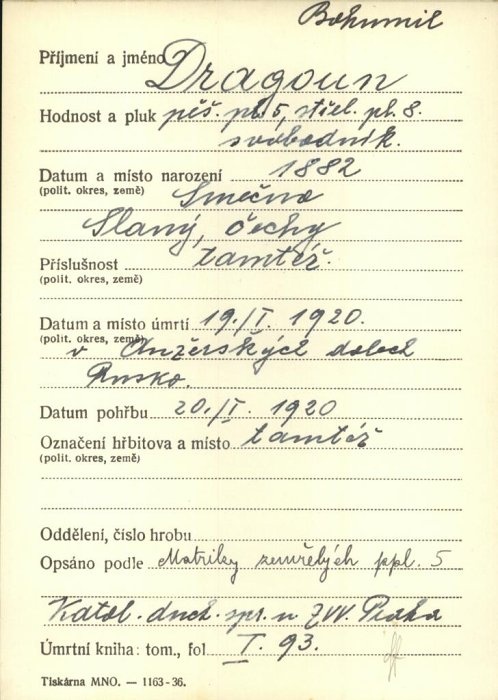 Bohumil
Příjmení a jméno Dragoun
Hodnost a pluk pěš. pl. 5, střel. pl. 8.
svobodník.
Datum a místo narození 1882
(polit. okres, země) Smečno
Slaný, Čechy
Příslušnost tamtéž.
(polit. okres, země)
Datum a místo úmrtí 19./I. 1920.
(polit. okres, země) v Anžerských dolech
Rusko.
Datum pohřbu 20./I. 1920
Označení hřbitova a místo tamtéž
(polit. okres, země)
Oddělení, číslo hrobu
Opsáno podle Matriky zemřelých ppl. 5
Katol. duch. spr. u ZVV. Praha
Úmrtní kniha: tom., fol I. 93.
Tiskárna MNO. — 1163-36.